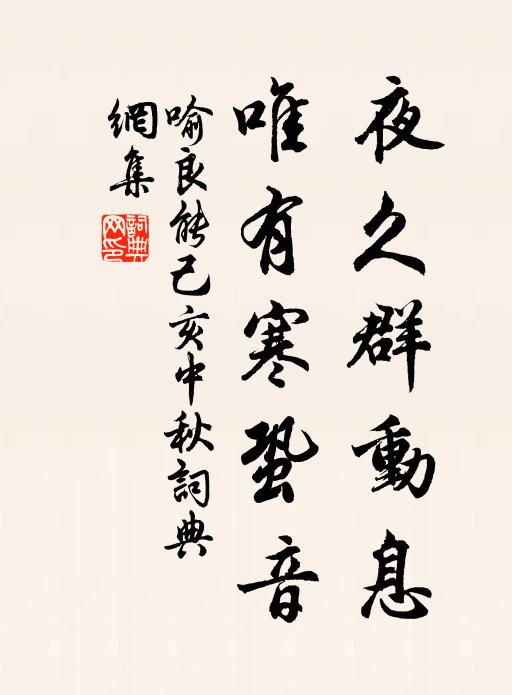 夜久群動息
唯有寒蛩音
喻良能己亥中秋詞典
網集
詞典
网印